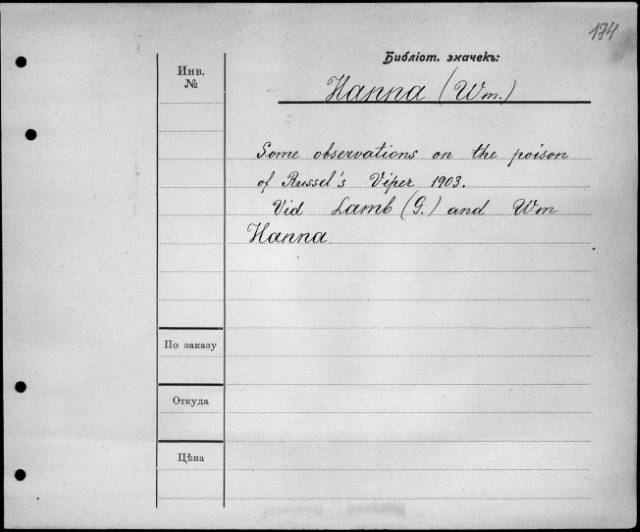 174
Библіот. значекъ:
Инв. №
Hanna (Wm.)
Some observations on the poison
of Russel's Viper 1903.
Vid Lamb (G.) and Wm
Hanna
По заказу
Откуда
Цѣна